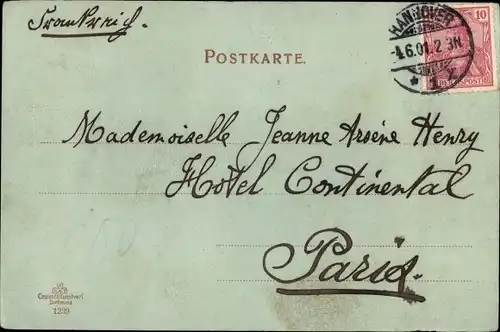 Frankreich.
HANNOVER
1.6.01.2-3N
* 1 x
10
REICHSPOST
POSTKARTE.
Mademoiselle Jeanne Arsène Henry
Hotel Continental
Paris.
1239